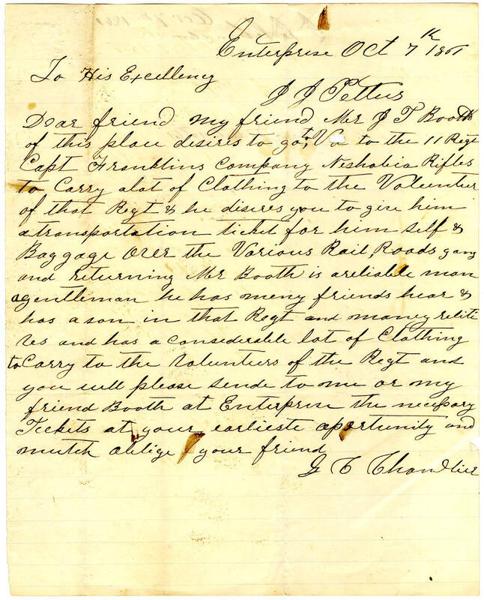 Enterprise Oct 7th 1861
To His Excellency
J J Pettus
Dear friend my friend Mr J T Booth
of this place desires to go to Va to the 11 Regt
Capt Franklins Company Neshobia Rifles
to Carry alot of Clothing to the Volunteer
of that Regt & he desires you to give him
a transportation ticket for him self &
Baggage over the Various Rail Roads going
and returning Mr Booth is a reliable man
a gentleman he has meny friends hear &
has a son in that Regt and maney relit
ves and has a considerable lot of Clothing
to Carry to the Volunteers of the Regt and
you will please sende to me or my
friend Booth at Enterprise the necessary
Tickets at your earlieste aportunity and
mutch oblige your friend
G C Chandler